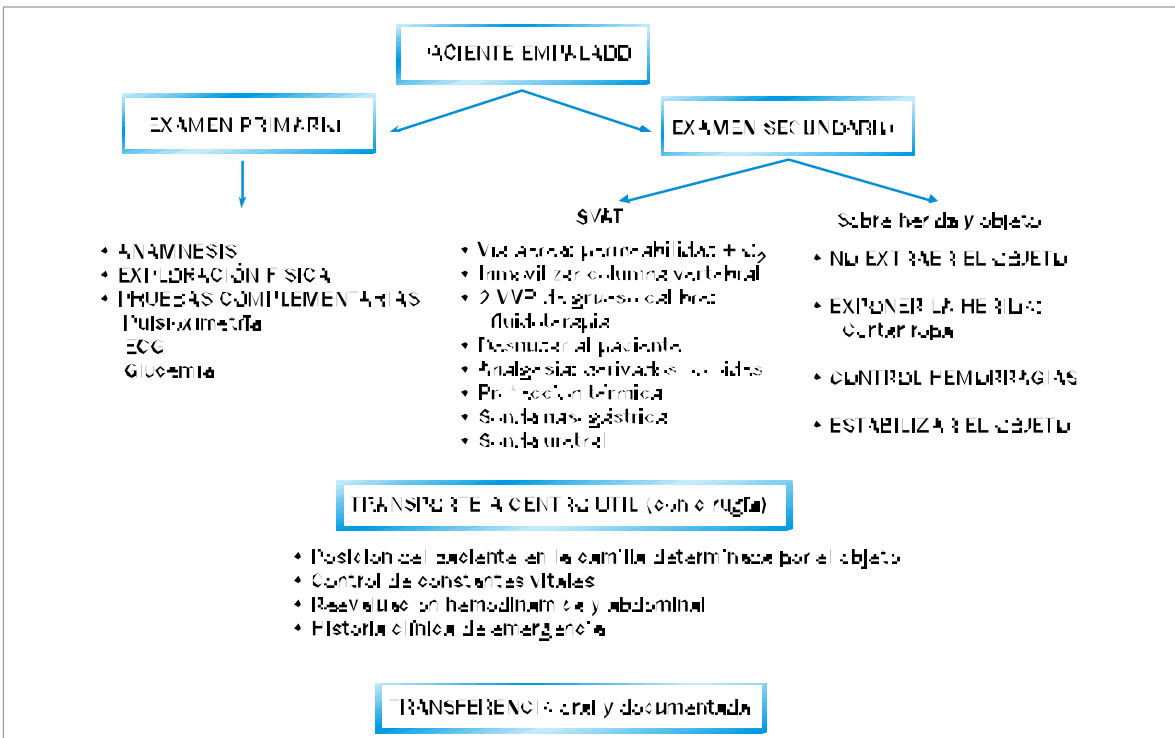 PACIENTE EMPALADO
EXAMEN PRIMARIO
EXAMEN SECUNDARIO
• ANAMNESIS
• EXPLORACIÓN FÍSICA
• PRUEBAS COMPLEMENTARIAS
Pulsioximetría
ECG
Glucemia
SVAT
• Vía aérea: permeabilidad + O2
• Inmovilizar columna vertebral
• 2 VVP de grueso calibre:
fluidoterapia
• Desnudar al paciente
• Analgesia: derivados opioides
• Protección térmica
• Sonda nasogástrica
• Sonda uretral
Sobre herida y objeto
• NO EXTRAER EL OBJETO
• EXPONER LA HERIDA:
Cortar ropa
• CONTROL HEMORRAGIAS
• ESTABILIZAR EL OBJETO
TRANSPORTE A CENTRO UTIL (con cirugía)
• Posición del paciente en la camilla determinada por el objeto
• Control de constantes vitales
• Reevaluación hemodinámica y abdominal
• Historia clínica de emergencia
TRANSFERENCIA oral y documentada